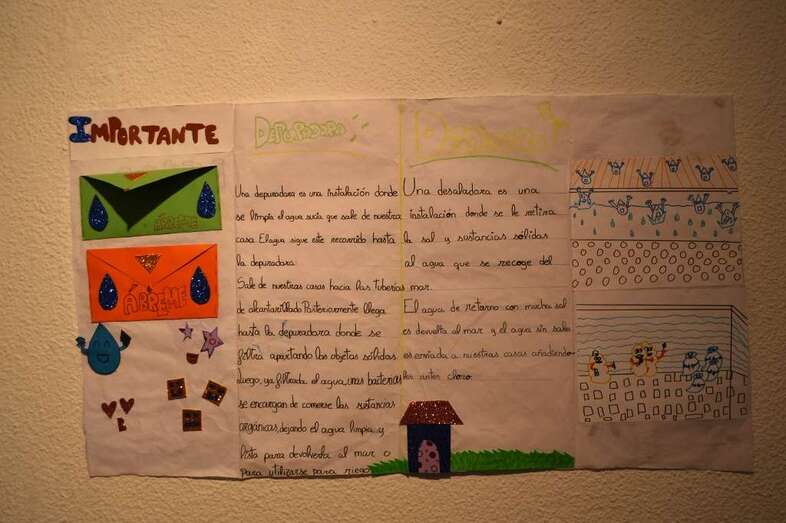 IMPORTANTE
ÁBREME
ÁBREME
DEPURADORA
Una depuradora es una instalación donde
se limpia el agua sucia que sale de nuestra
casa. El agua sigue este recorrido hasta
la depuradora:
Sale de nuestras casas hacia las tuberías
de alcantarillado. Posteriormente llega
hasta la depuradora donde se
filtra apartando los objetos sólidos
luego, ya filtrada el agua, unas bacterias
se encargan de comerse las sustancias
orgánicas, dejando el agua limpia y
lista para devolverla al mar o
para utilizarse para riego
Desaladora
Una desaladora es una
instalación donde se le retira
la sal y sustancias sólidas
al agua que se recoge del
mar.
El agua de retorno con mucha sal
es devuelta al mar y el agua sin sales
es enviada a nuestras casas añadiendo
les antes cloro.